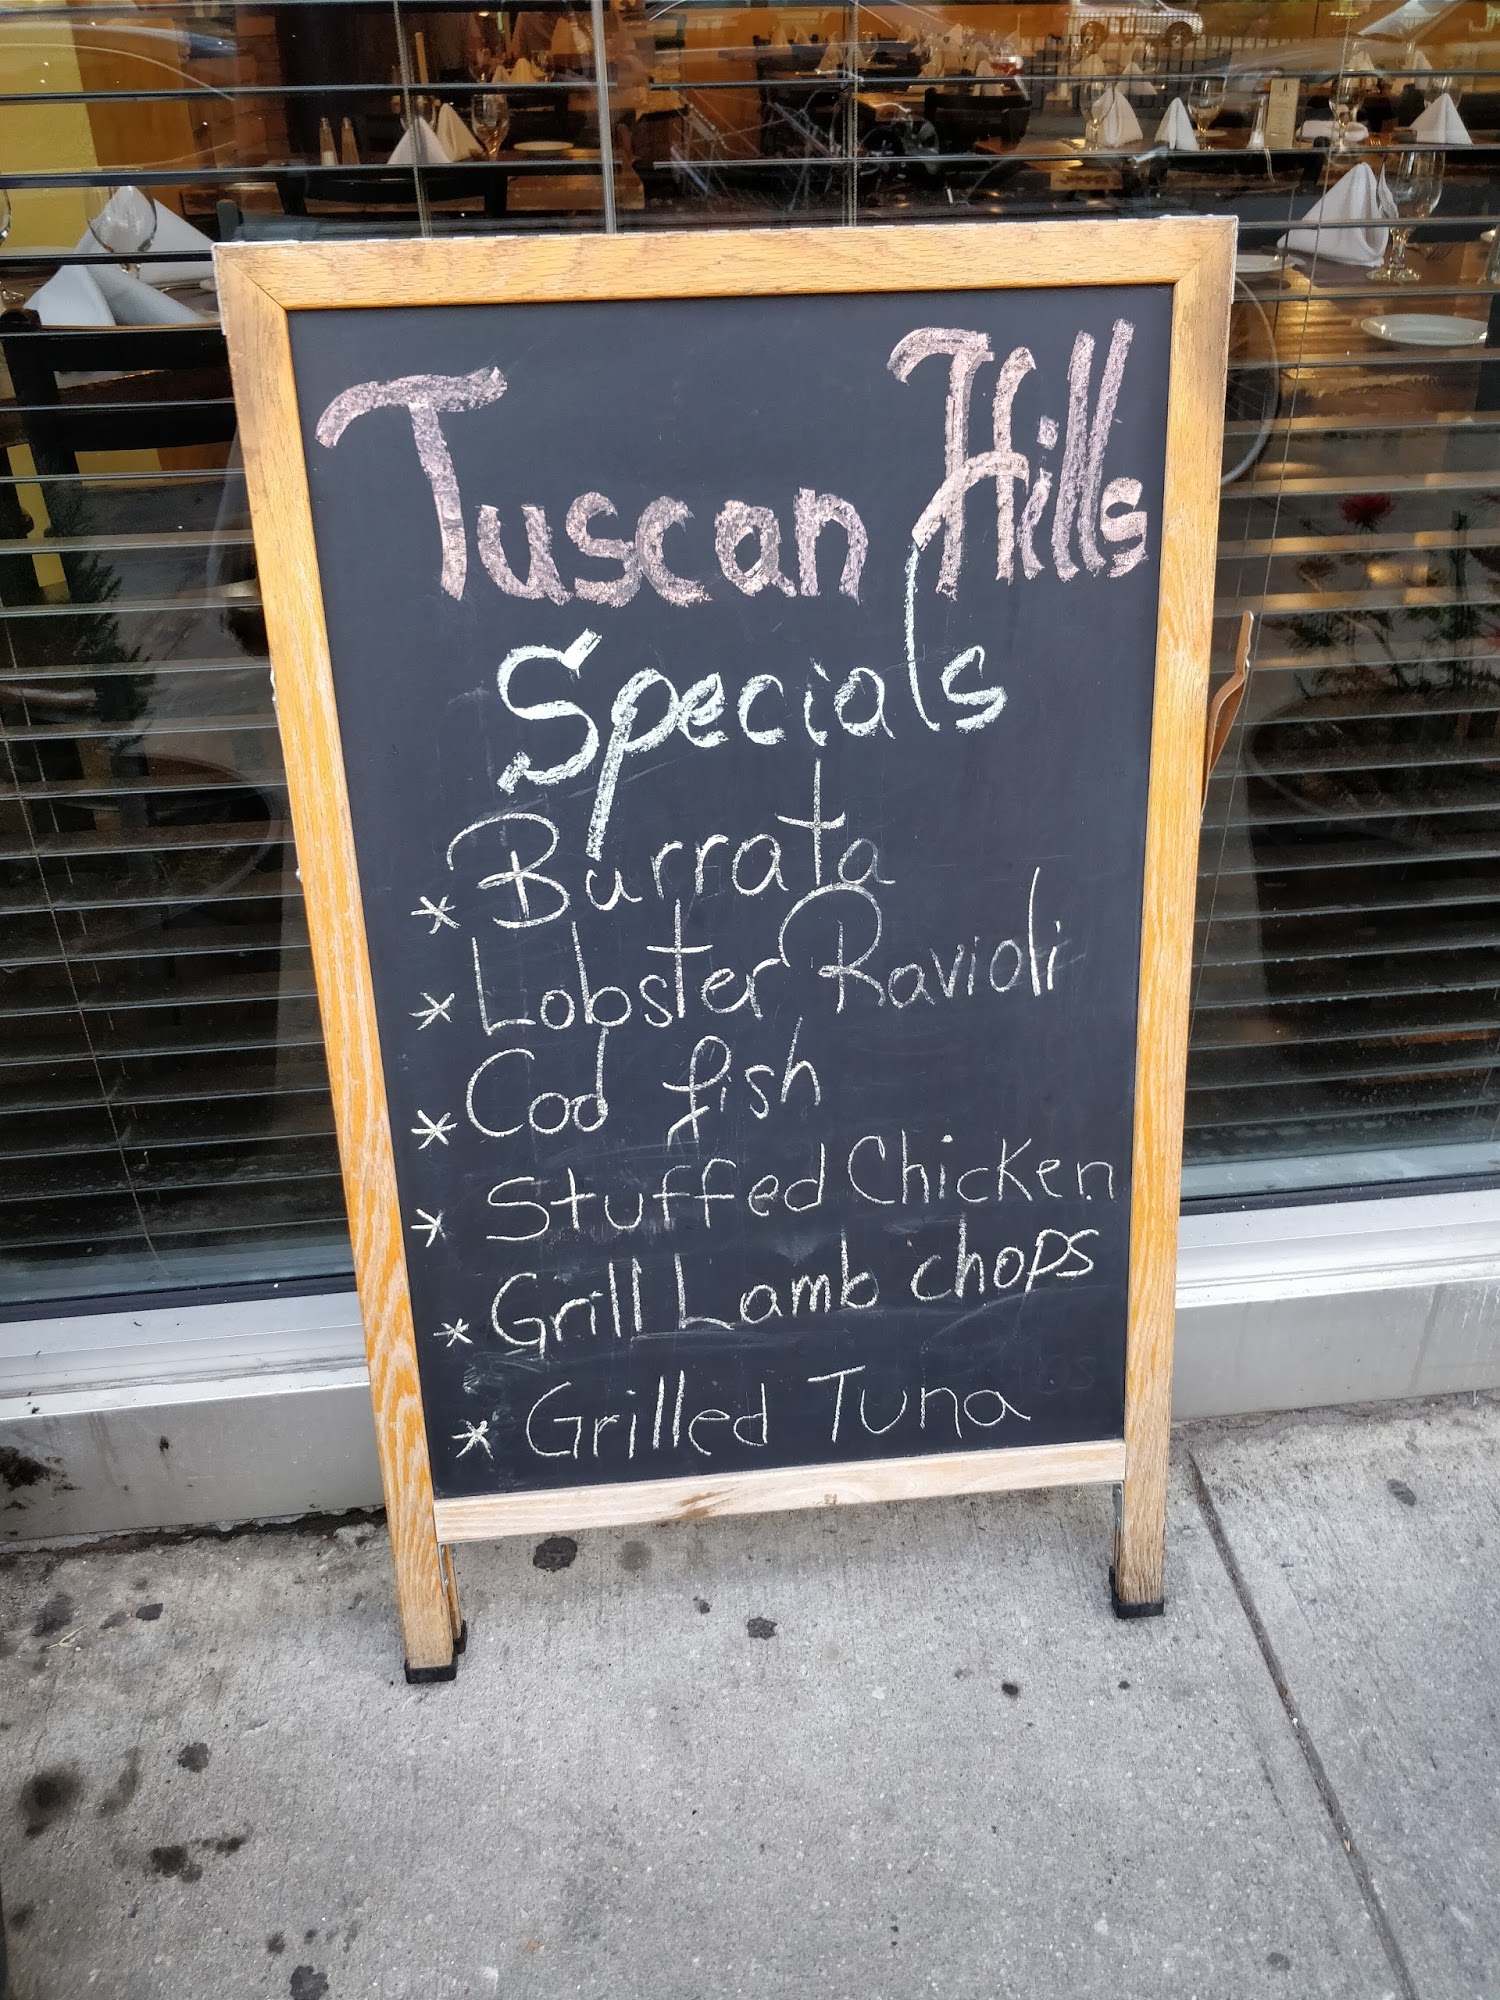 Tuscan Hills
Specials
* Burrata
* Lobster Ravioli
* Cod fish
* Stuffed Chicken
* Grill Lamb chops
* Grilled Tuna